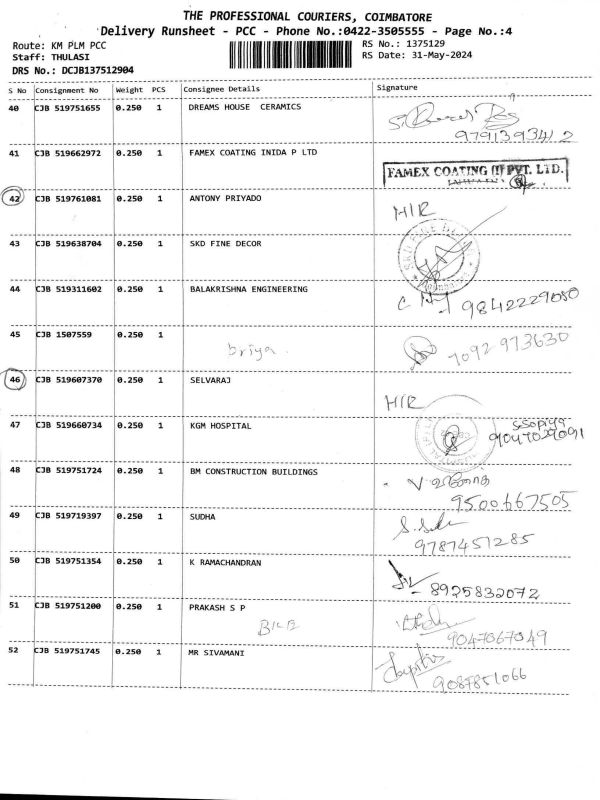 THE PROFESSIONAL COURIERS, COIMBATORE
Delivery Runsheet - PCC - Phone No.:0422-3505555 - Page No.:4
Route: KM PLM PCC
RS No.: 1375129
Staff: THULASI
RS Date: 31-May-2024
DRS No.: DCJB137512904
S No Consignment No Weight PCS Consignee Details Signature
40 CJB 519751655 0.250 1 DREAMS HOUSE CERAMICS
9791393412
41 CJB 519662972 0.250 1 FAMEX COATING INIDA P LTD
FAMEX COATING (I) PVT. LTD.
42 CJB 519761081 0.250 1 ANTONY PRIYADO
H/R
43 CJB 519638704 0.250 1 SKD FINE DECOR
44 CJB 519311602 0.250 1 BALAKRISHNA ENGINEERING
9842229080
45 CJB 1507559 0.250 1
priya. 7092 973630
46 CJB 519607370 0.250 1 SELVARAJ
H/R
47 CJB 519660734 0.250 1 KGM HOSPITAL
9047029091
48 CJB 519751724 0.250 1 BM CONSTRUCTION BUILDINGS
9500667505
49 CJB 519719397 0.250 1 SUDHA
9787451285
50 CJB 519751354 0.250 1 K RAMACHANDRAN
8925832072
51 CJB 519751200 0.250 1 PRAKASH S P
9047067049
52 CJB 519751745 0.250 1 MR SIVAMANI
9087851066